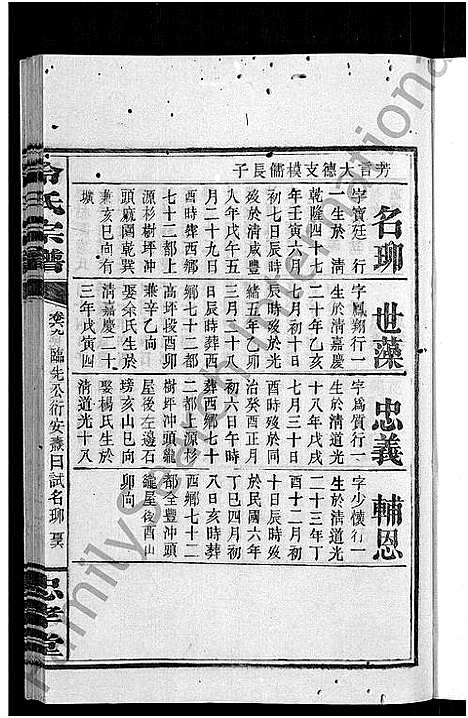 芳言大德支模儒長子
名珋
字寶廷 行
一生於 清
乾隆四十七
年壬寅六月
初七日辰時
歿於清咸豐
八年戊午五
月二十九日
酉時葬西鄉
七十二都上
源杉樹坪冲
頭麻園乾巽
兼亥巳向有
墳
世藻
字鳳翔行一
生於清嘉慶
二十年乙亥
七月初十日
辰時歿於光
緒五年乙卯
三月二十八
日辰時葬西
鄉七十二都
高坪段酉卯
兼辛乙向
娶余氏生於
清嘉慶二十
三年戊寅四
忠義
字爲質行一
生於淸道光
十八年戊戌
七月三十日
酉時歿於同
治癸酉正月
初六日午時
葬西鄉七十
二都上源杉
樹坪冲頭龍
屋後左邊石
塝亥山巳向
娶楊氏生於
清道光十八
輔恩
字少懷行一
生於淸道光
二十三年丁
酉十二月初
十日辰時歿
於民國六年
丁巳四月初
八日亥時葬
西鄉七十二
都全豐冲頭
龍屋後酉山
卯向
冷氏宗譜
臨先公衍安燾曰試名珋
忠孝堂